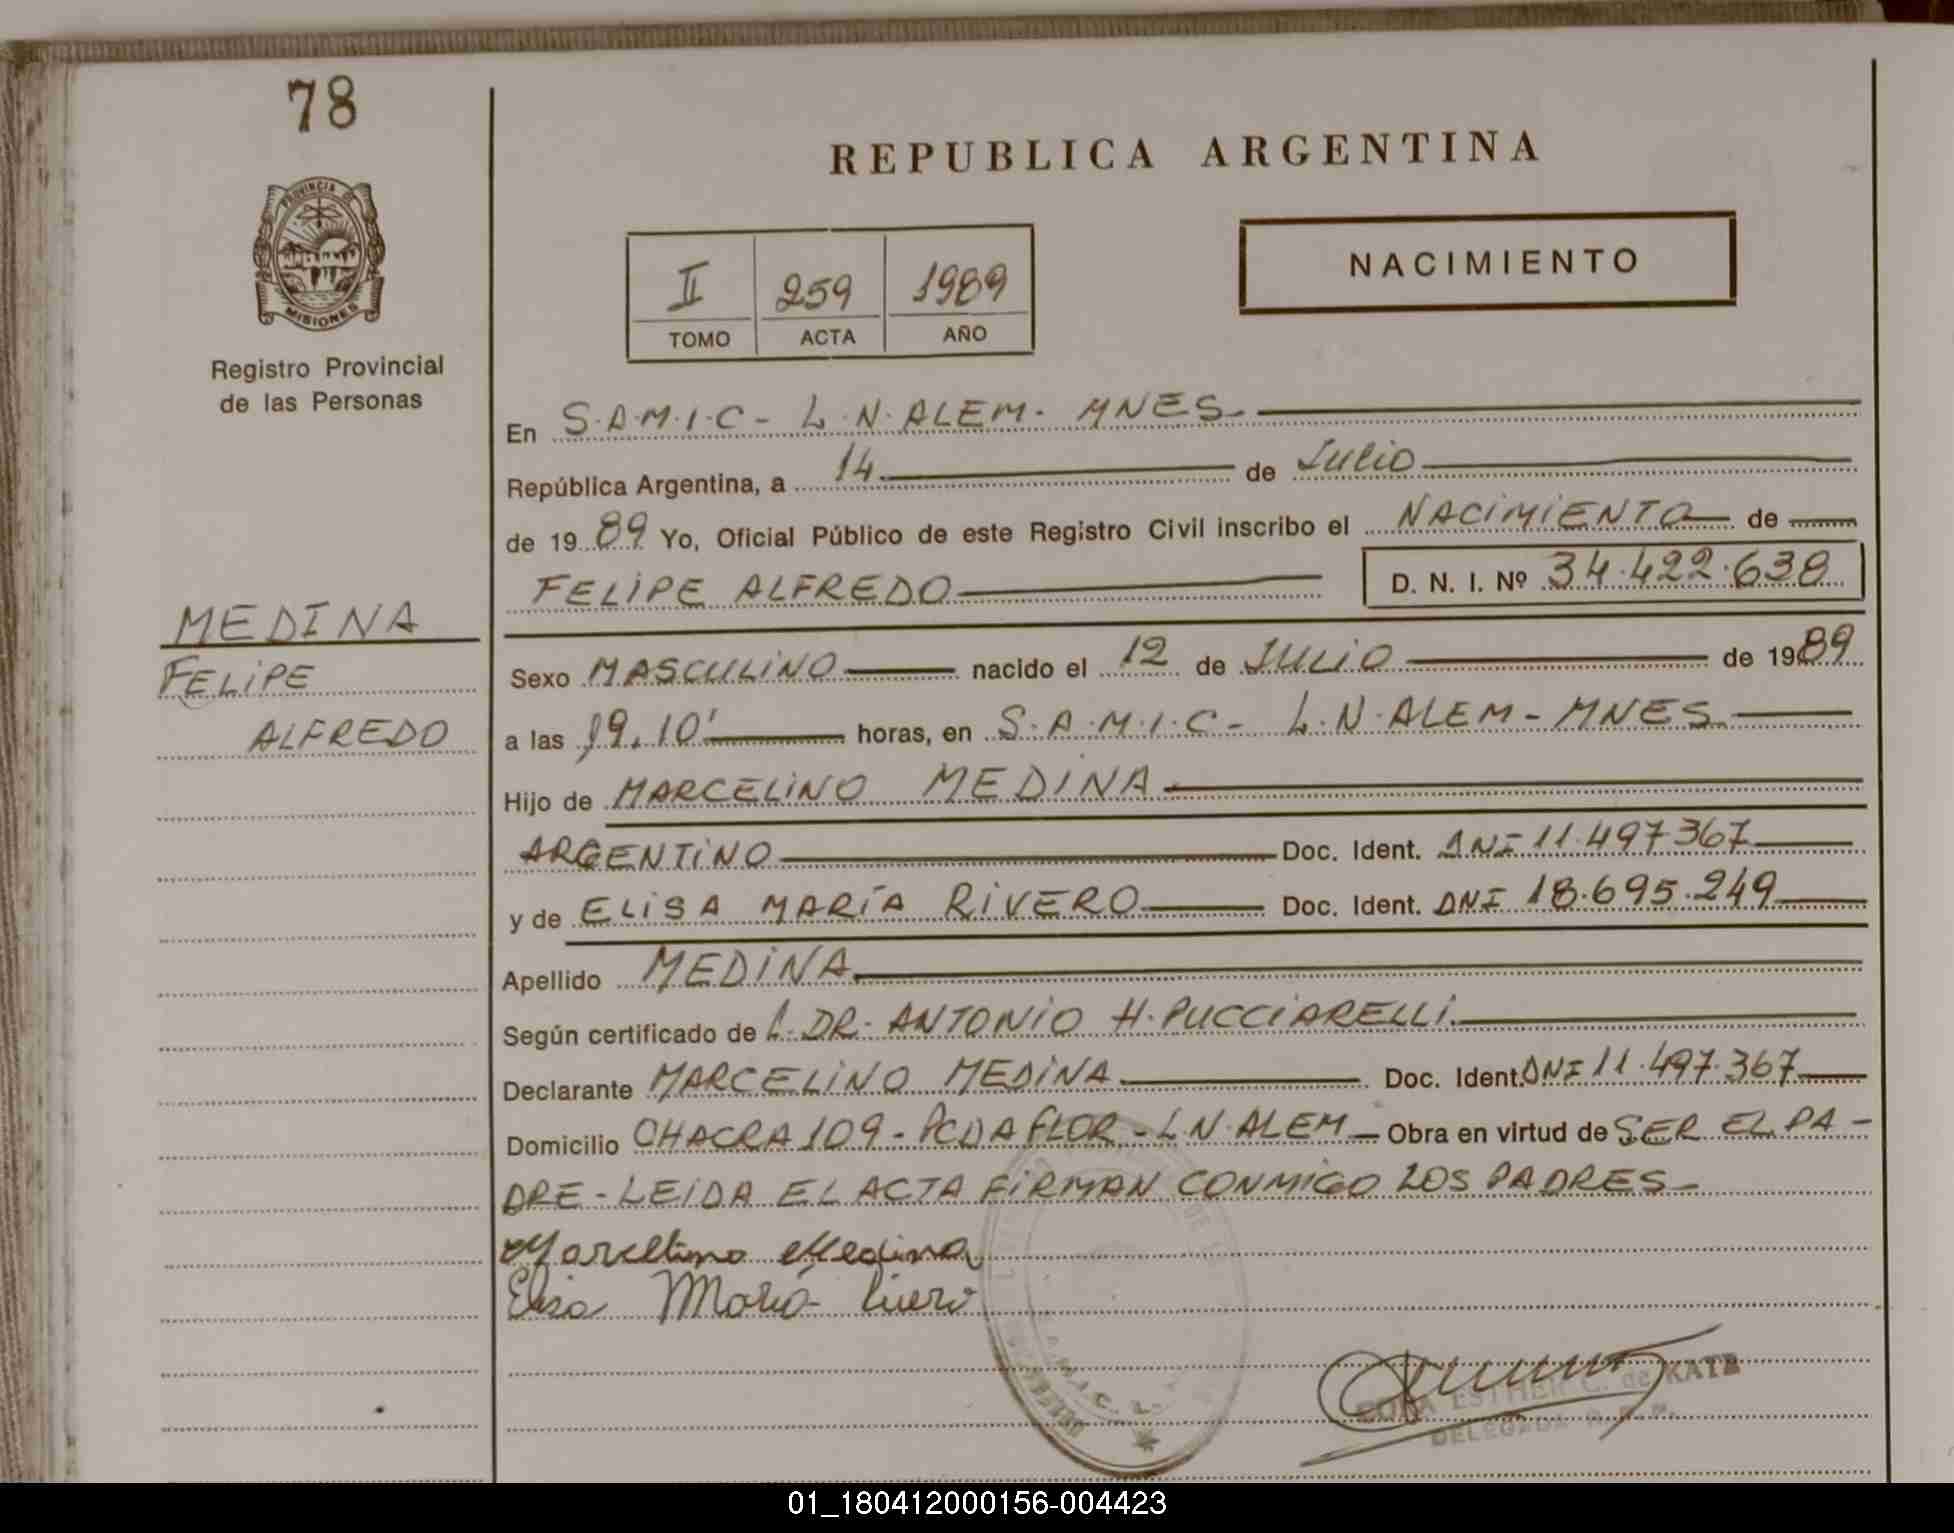 78
REPUBLICA ARGENTINA
PROVINCIA DE
MISIONES
Registro Provincial
de las Personas
II 259 1989
TOMO ACTA AÑO
NACIMIENTO
En S.A.M.I.C - L.N.ALEM. MNES.
República Argentina, a 14 de Julio
de 1989 Yo, Oficial Público de este Registro Civil inscribo el NACIMIENTO de
FELIPE ALFREDO D. N. I. Nº 34.422.638
MEDINA
FELIPE
ALFREDO
Sexo MASCULINO nacido el 12 de JULIO de 1989
a las 19.10' horas, en S.A.M.I.C - L.N.ALEM - MNES
Hijo de MARCELINO MEDINA
ARGENTINO Doc. Ident. DNI 11.497367
y de ELISA MARÍA RIVERO Doc. Ident. DNI 18.695.249
Apellido MEDINA
Según certificado de L. DR. ANTONIO H. PUCCIARELLI.
Declarante MARCELINO MEDINA Doc. Ident. DNI 11.497.367
Domicilio CHACRA 109 - PCDA FLOR - L N. ALEM - Obra en virtud de SER EL PA -
DRE - LEIDA EL ACTA FIRMAN CONMIGO LOS PADRES -
Marcelino Medina
Elisa María Rivero
ESTHER C. de KATZ
DELEGADA R.P.P.
01_180412000156-004423